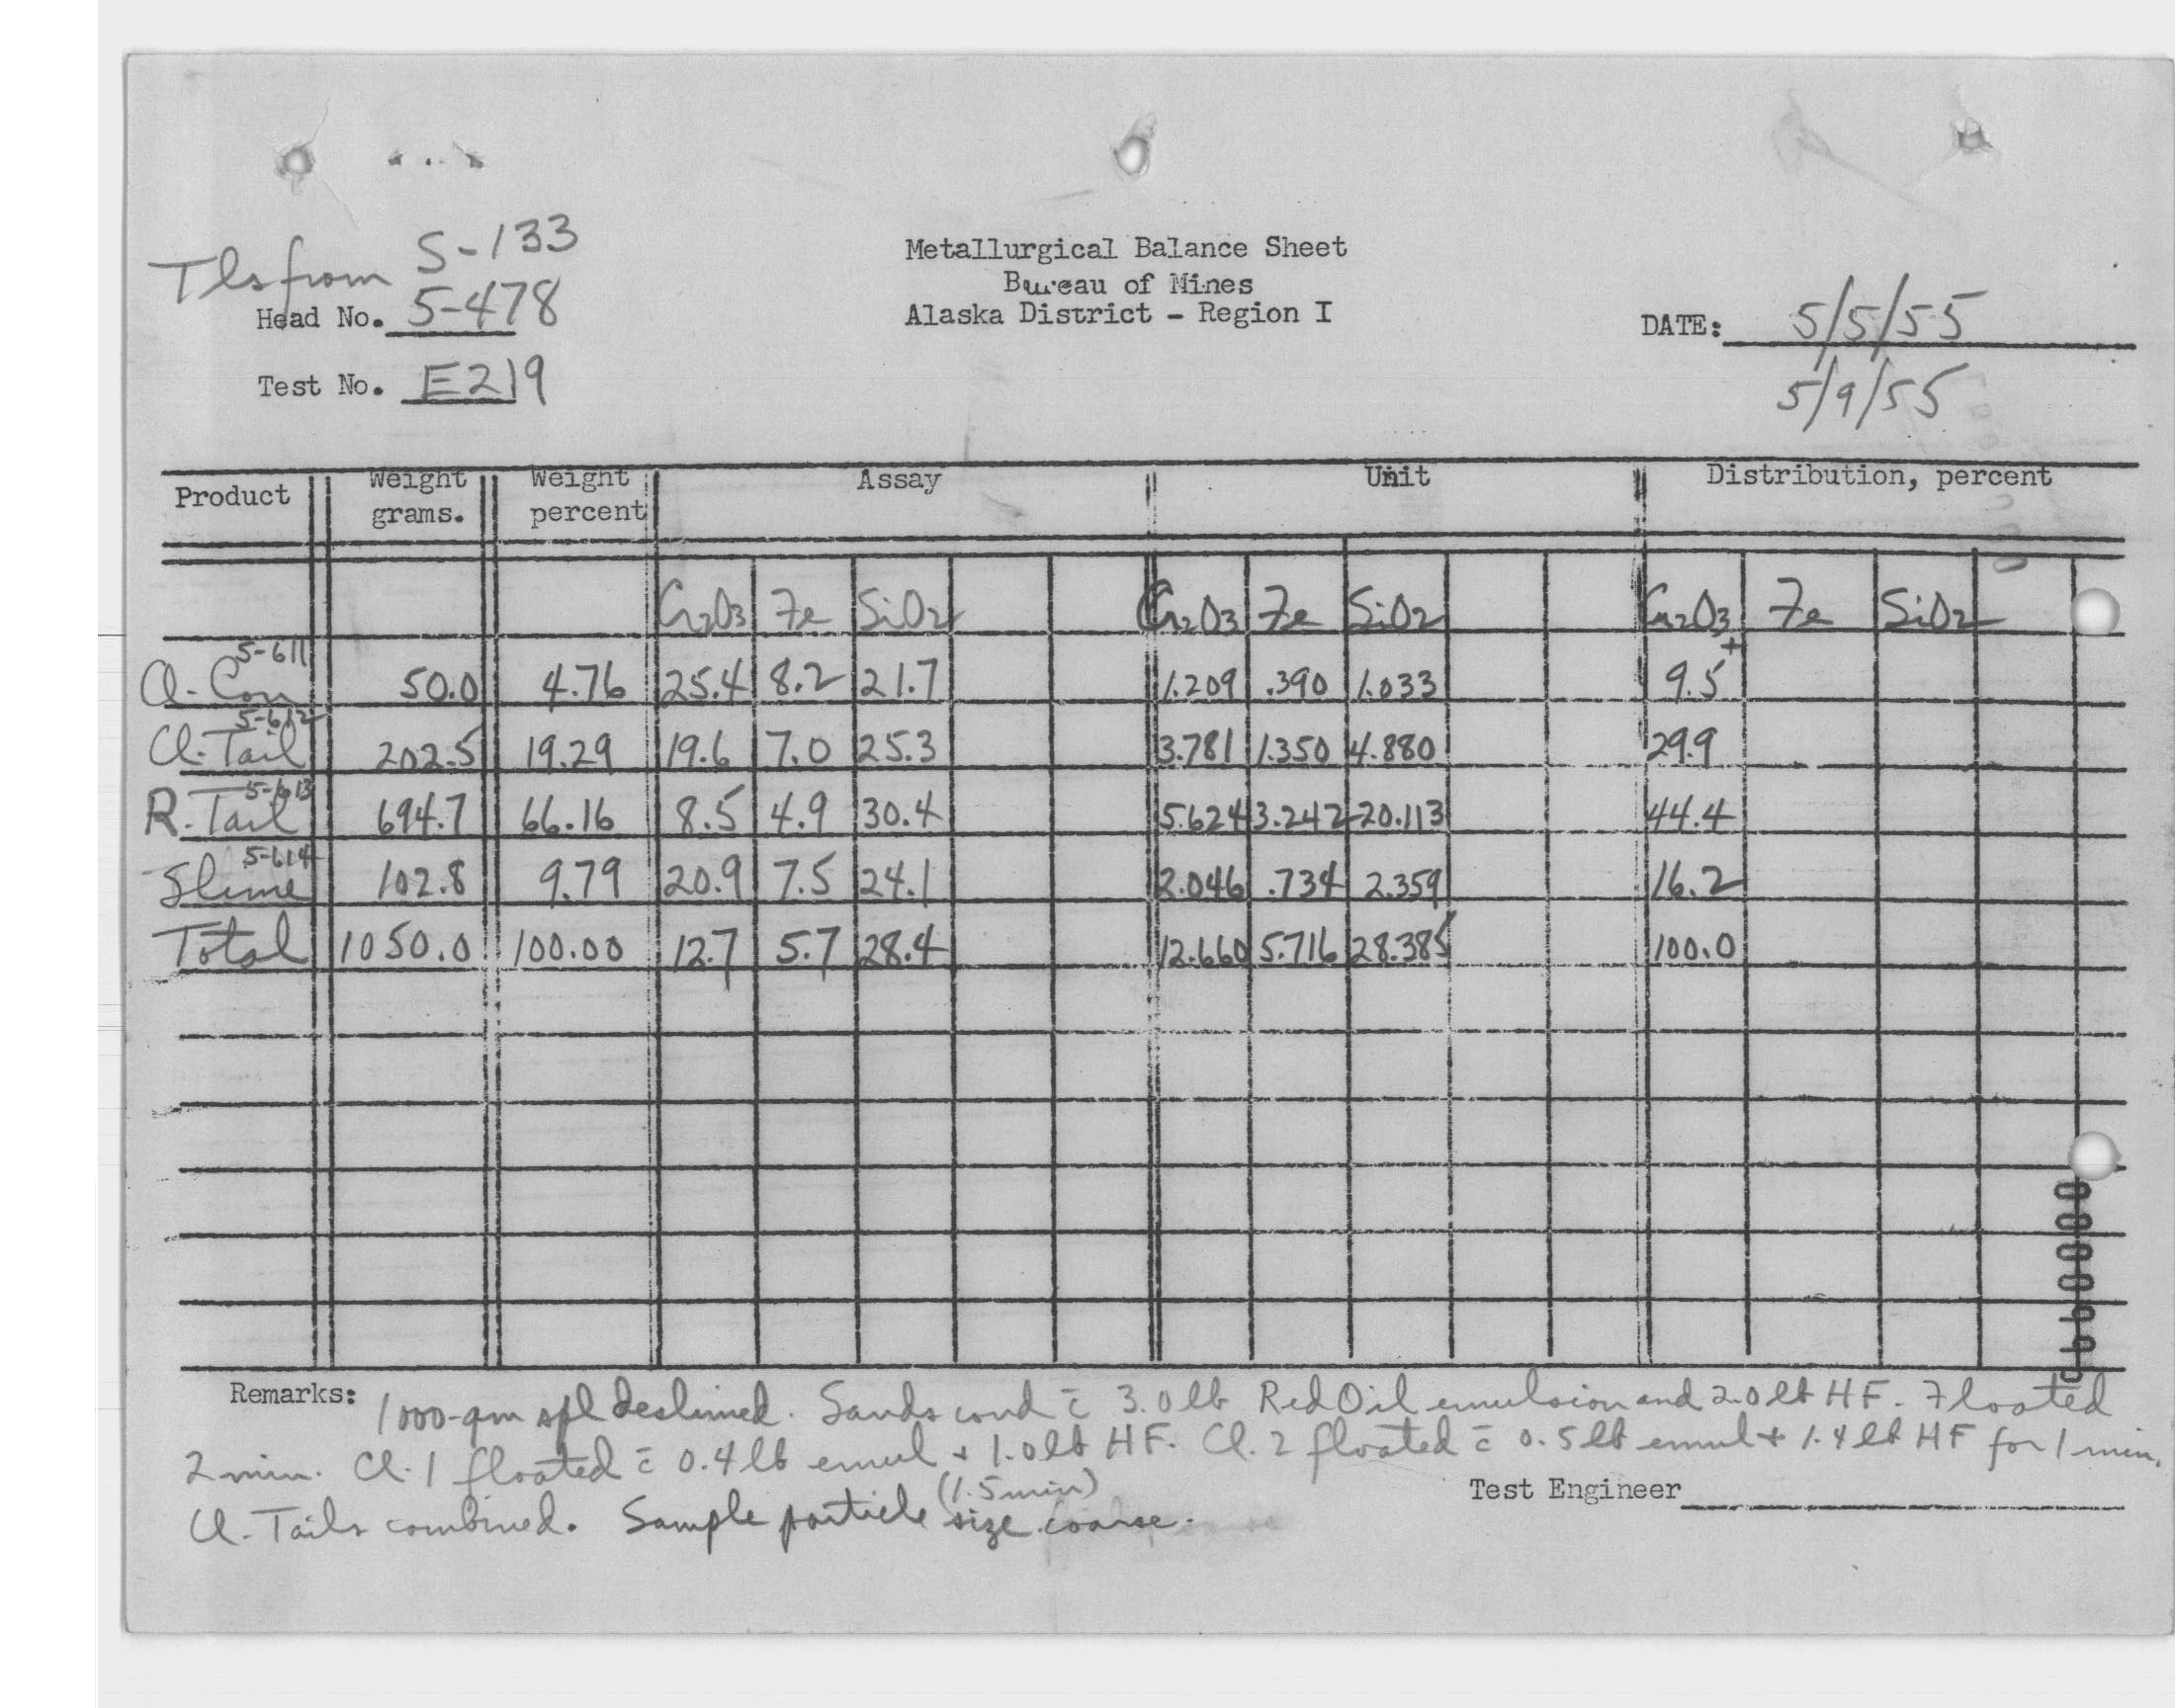 Tls from S-133
Metallurgical Balance Sheet
Bureau of Mines
Alaska District - Region I
Head No. 5-478
DATE: 5/5/55
Test No. E219
5/9/55
Product Weight grams. Weight percent Assay Unit Distribution, percent
Cr2O3 Fe SiO2 Cr2O3 Fe SiO2 Cr2O3 Fe SiO2
5-611
Cl. Con 50.0 4.76 25.4 8.2 21.7 1.209 .390 1.033 9.5+
5-612
Cl. Tail 202.5 19.29 19.6 7.0 25.3 3.781 1.350 4.880 29.9
5-613
R. Tail 694.7 66.16 8.5 4.9 30.4 5.624 3.242 20.113 44.4
5-614
Slime 102.8 9.79 20.9 7.5 24.1 2.046 .734 2.359 16.2
Total 1050.0 100.00 12.7 5.7 28.4 12.660 5.716 28.385 100.0
Remarks: 1000-gm spl deslimed. Sands cond c̄ 3.0 lb Red Oil emulsion and 2.0 lb HF. Floated
2 min. Cl. 1 floated c̄ 0.4 lb emul + 1.0 lb HF. Cl. 2 floated c̄ 0.5 lb emul + 1.4 lb HF for 1 min.
(1.5 min)
Test Engineer
Cl. Tails combined. Sample particle size coarse.